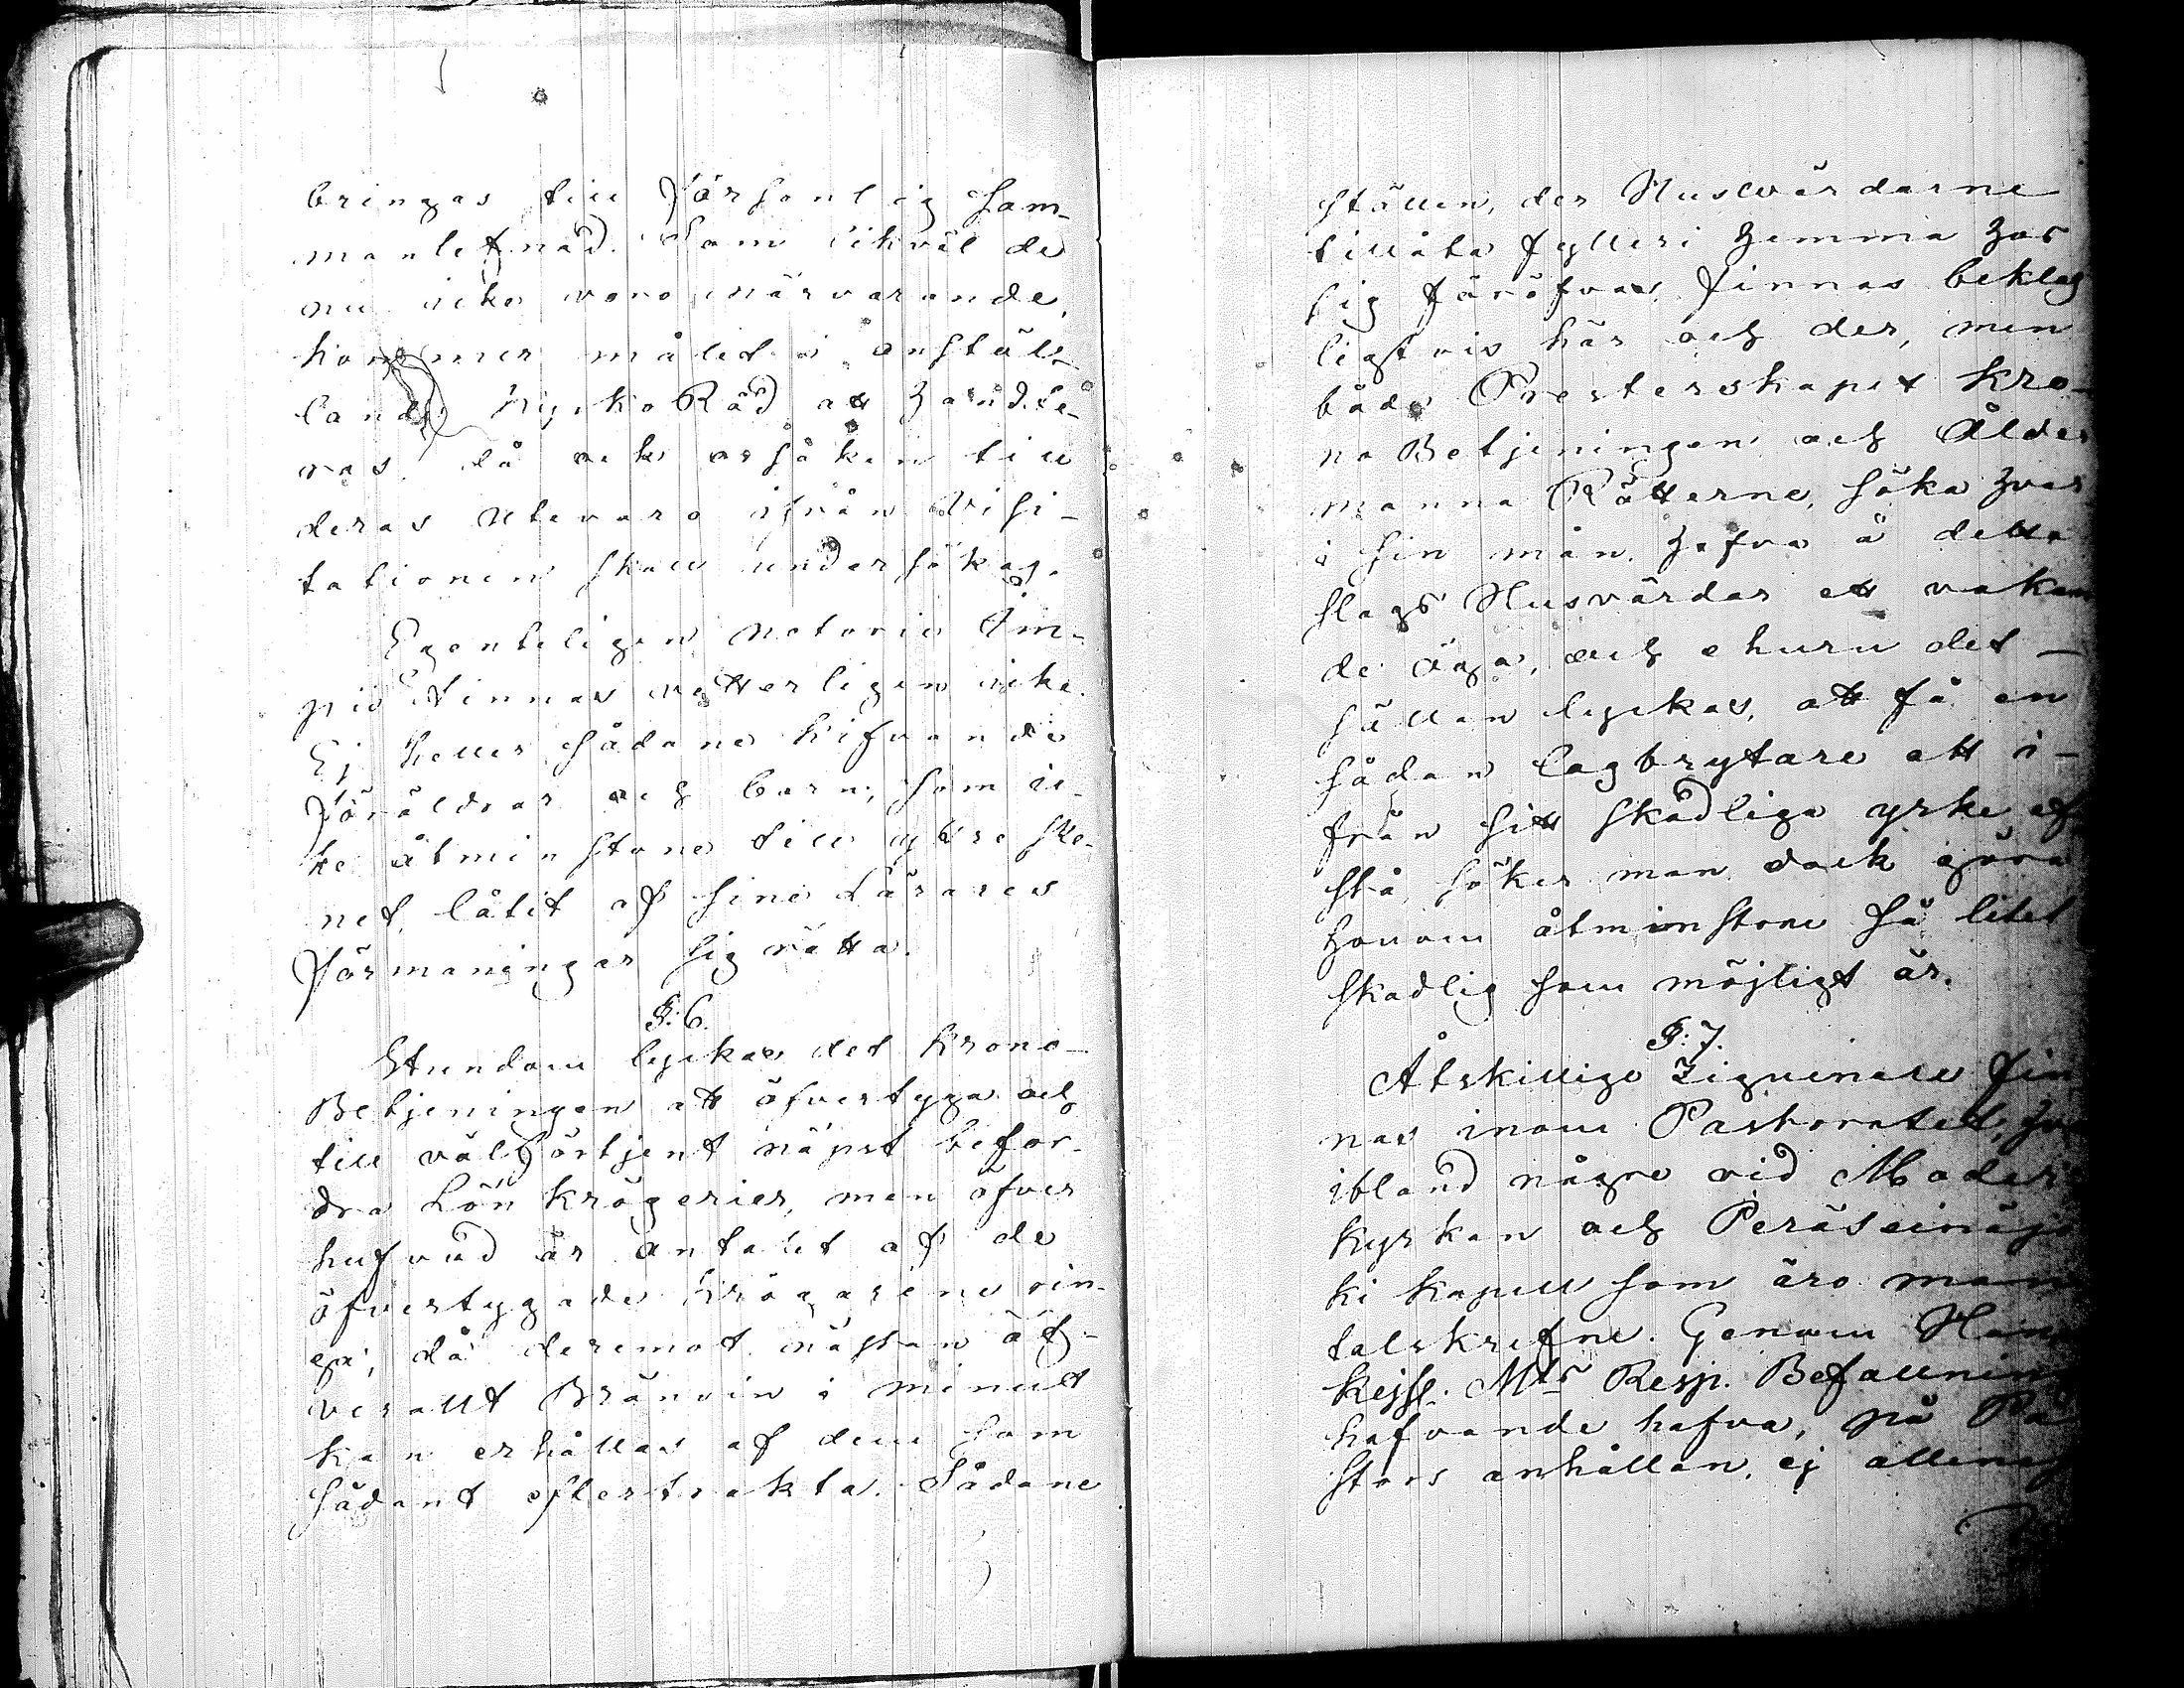 bringas till försonlig sam-
manlefnad. Som likväl de
nu icke voro närvarande,
kommer målet i anstäl-
lande KyrkoRåd att handte-
ras, då ock orsaken till
deras utevaro ifrån Visi-
tationen skall undersökas.
Egenteligen notorie Im-
pii finnas vetterligen icke.
Ej heller sådane kifvande
Föräldrar och barn, som ic-
ke åtminstone till yttre ske-
net låtit af sine Lärares
förmaningar sig rätta.
§: 6.
Stundom lyckas det Krono-
Betjeningen att öfvertyga och
till välförtjent näpst befor-
dra Lönkrögerier, men öfver
hufvud är antalet af de
öfvertygade Krögarene rin-
ga, då deremot nästan öf-
verallt Bränvin i minut
kan erhållas af dem som
sådant eftertrakta. Sådane
ställen, der Husvärdarne
tillåta fylleri hemma hos
sig föröfvas, finnas beklag
ligtvis här och der, men
både Presterskapet Kro-
no Betjeningen och Ålder
manna Rätterne, söka hvar
i sin mån hafva å detta
slags Husvärdar ett vakan
de öga, och ehuru det
sällan lyckas, att få en
sådan lagbrytare att i-
från sitt skadliga yrke af
stå, söker man dock göra
honom åtminstone så litet
skadlig som möjligt är.
§: 7.
Åtskillige Ziguenare fin
nas inom Pastoratet, hv
ibland någre vid Moder
kyrkan och Peräseinäjo
ki kapell som äro man
talskrefne. Genom Hans
Kejsl. Mts Resp. Befallnin
hafvande hafva, på Pa
stors anhållan, ej allenas